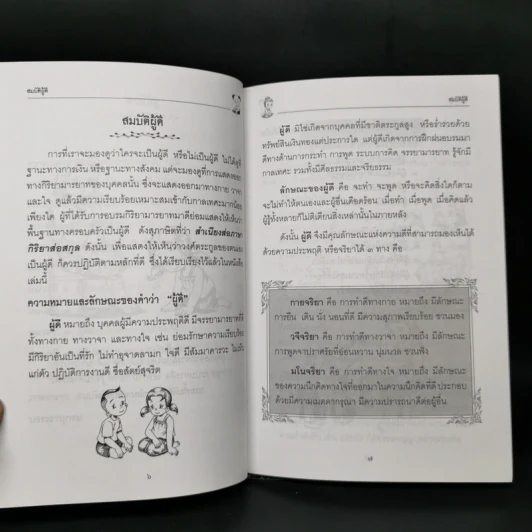 สมบัติผู้ดี
สมบัติผู้ดี
การที่เราจะมองดูว่าใครจะเป็นผู้ดี หรือไม่เป็นผู้ดี ไม่ได้ดูที่
ฐานะทางการเงิน หรือฐานะทางสังคม แต่จะมองดูที่การแสดงออก
ทางกิริยามารยาทของบุคคลนั้น ซึ่งจะแสดงออกมาทางกาย วาจา
และใจ ดูแล้วมีความเรียบร้อยเหมาะสมเข้ากับกาลเทศะมากน้อย
เพียงใด ผู้ที่ได้รับการอบรมกิริยามารยาทมาดีย่อมแสดงให้เห็นว่า
พื้นฐานทางครอบครัวเป็นผู้ดี ดังสุภาษิตที่ว่า สำเนียงส่อภาษา
กิริยาส่อสกุล ดังนั้น เพื่อแสดงให้เห็นว่าวงศ์ตระกูลของตนเอง
เป็นผู้ดี ก็ควรปฏิบัติตามหลักที่ดี ซึ่งได้เรียบเรียงไว้แล้วในหนังสือ
เล่มนี้
ความหมายและลักษณะของคำว่า "ผู้ดี"
ผู้ดี หมายถึง บุคคลผู้มีความประพฤติดี มีจรรยามารยาทดี
ทั้งทางกาย ทางวาจา และทางใจ เช่น ย่อมรักษาความเรียบร้อย
มีกิริยาอันเป็นที่รัก ไม่ทำอุจาดลามก ใจดี มีสัมมาคารวะ ไม่เห็น
แก่ตัว ปฏิบัติการงานดี ซื่อสัตย์สุจริต
๖
สมบัติผู้ดี
ผู้ดี มิใช่เกิดจากบุคคลที่มีชาติตระกูลสูง หรือร่ำรวยด้วย
ทรัพย์สินเงินทองแต่ประการใด แต่ผู้ดีเกิดจากการฝึกฝนอบรมมา
ดีทางด้านการกระทำ การพูด ระบบการคิด จรรยามารยาท รู้จักมี
กาลเทศะ รวมทั้งมีศีลธรรมและจริยธรรม
ลักษณะของผู้ดี คือ จะทำ จะพูด หรือจะคิดสิ่งใดก็ตาม
จะไม่ทำให้ตนเองและผู้อื่นเดือดร้อน เมื่อทำ เมื่อพูด เมื่อคิดแล้ว
ผู้รู้ทั้งหลายก็ไม่ติเตียนสิ่งเหล่านั้นในภายหลัง
ดังนั้น ผู้ดี จึงมีคุณลักษณะแห่งความดีที่สามารถมองเห็นได้
ด้วยความประพฤติ หรือจริยาได้ ๓ ทาง คือ
กายจริยา คือ การทำดีทางกาย หมายถึง มีลักษณะ
การยืน เดิน นั่ง นอนที่ดี มีความสุภาพเรียบร้อย ชวนมอง
วจีจริยา คือ การทำดีทางวาจา หมายถึง มีลักษณะ
การพูดจาปราศรัยที่อ่อนหวาน นุ่มนวล ชวนฟัง
มโนจริยา คือ การทำดีทางใจ หมายถึง มีลักษณะ
ของความนึกคิดทางใจที่ออกมาในความนึกคิดที่ดี ประกอบ
ด้วยมีความเมตตากรุณา มีความปรารถนาดีต่อผู้อื่น
๗